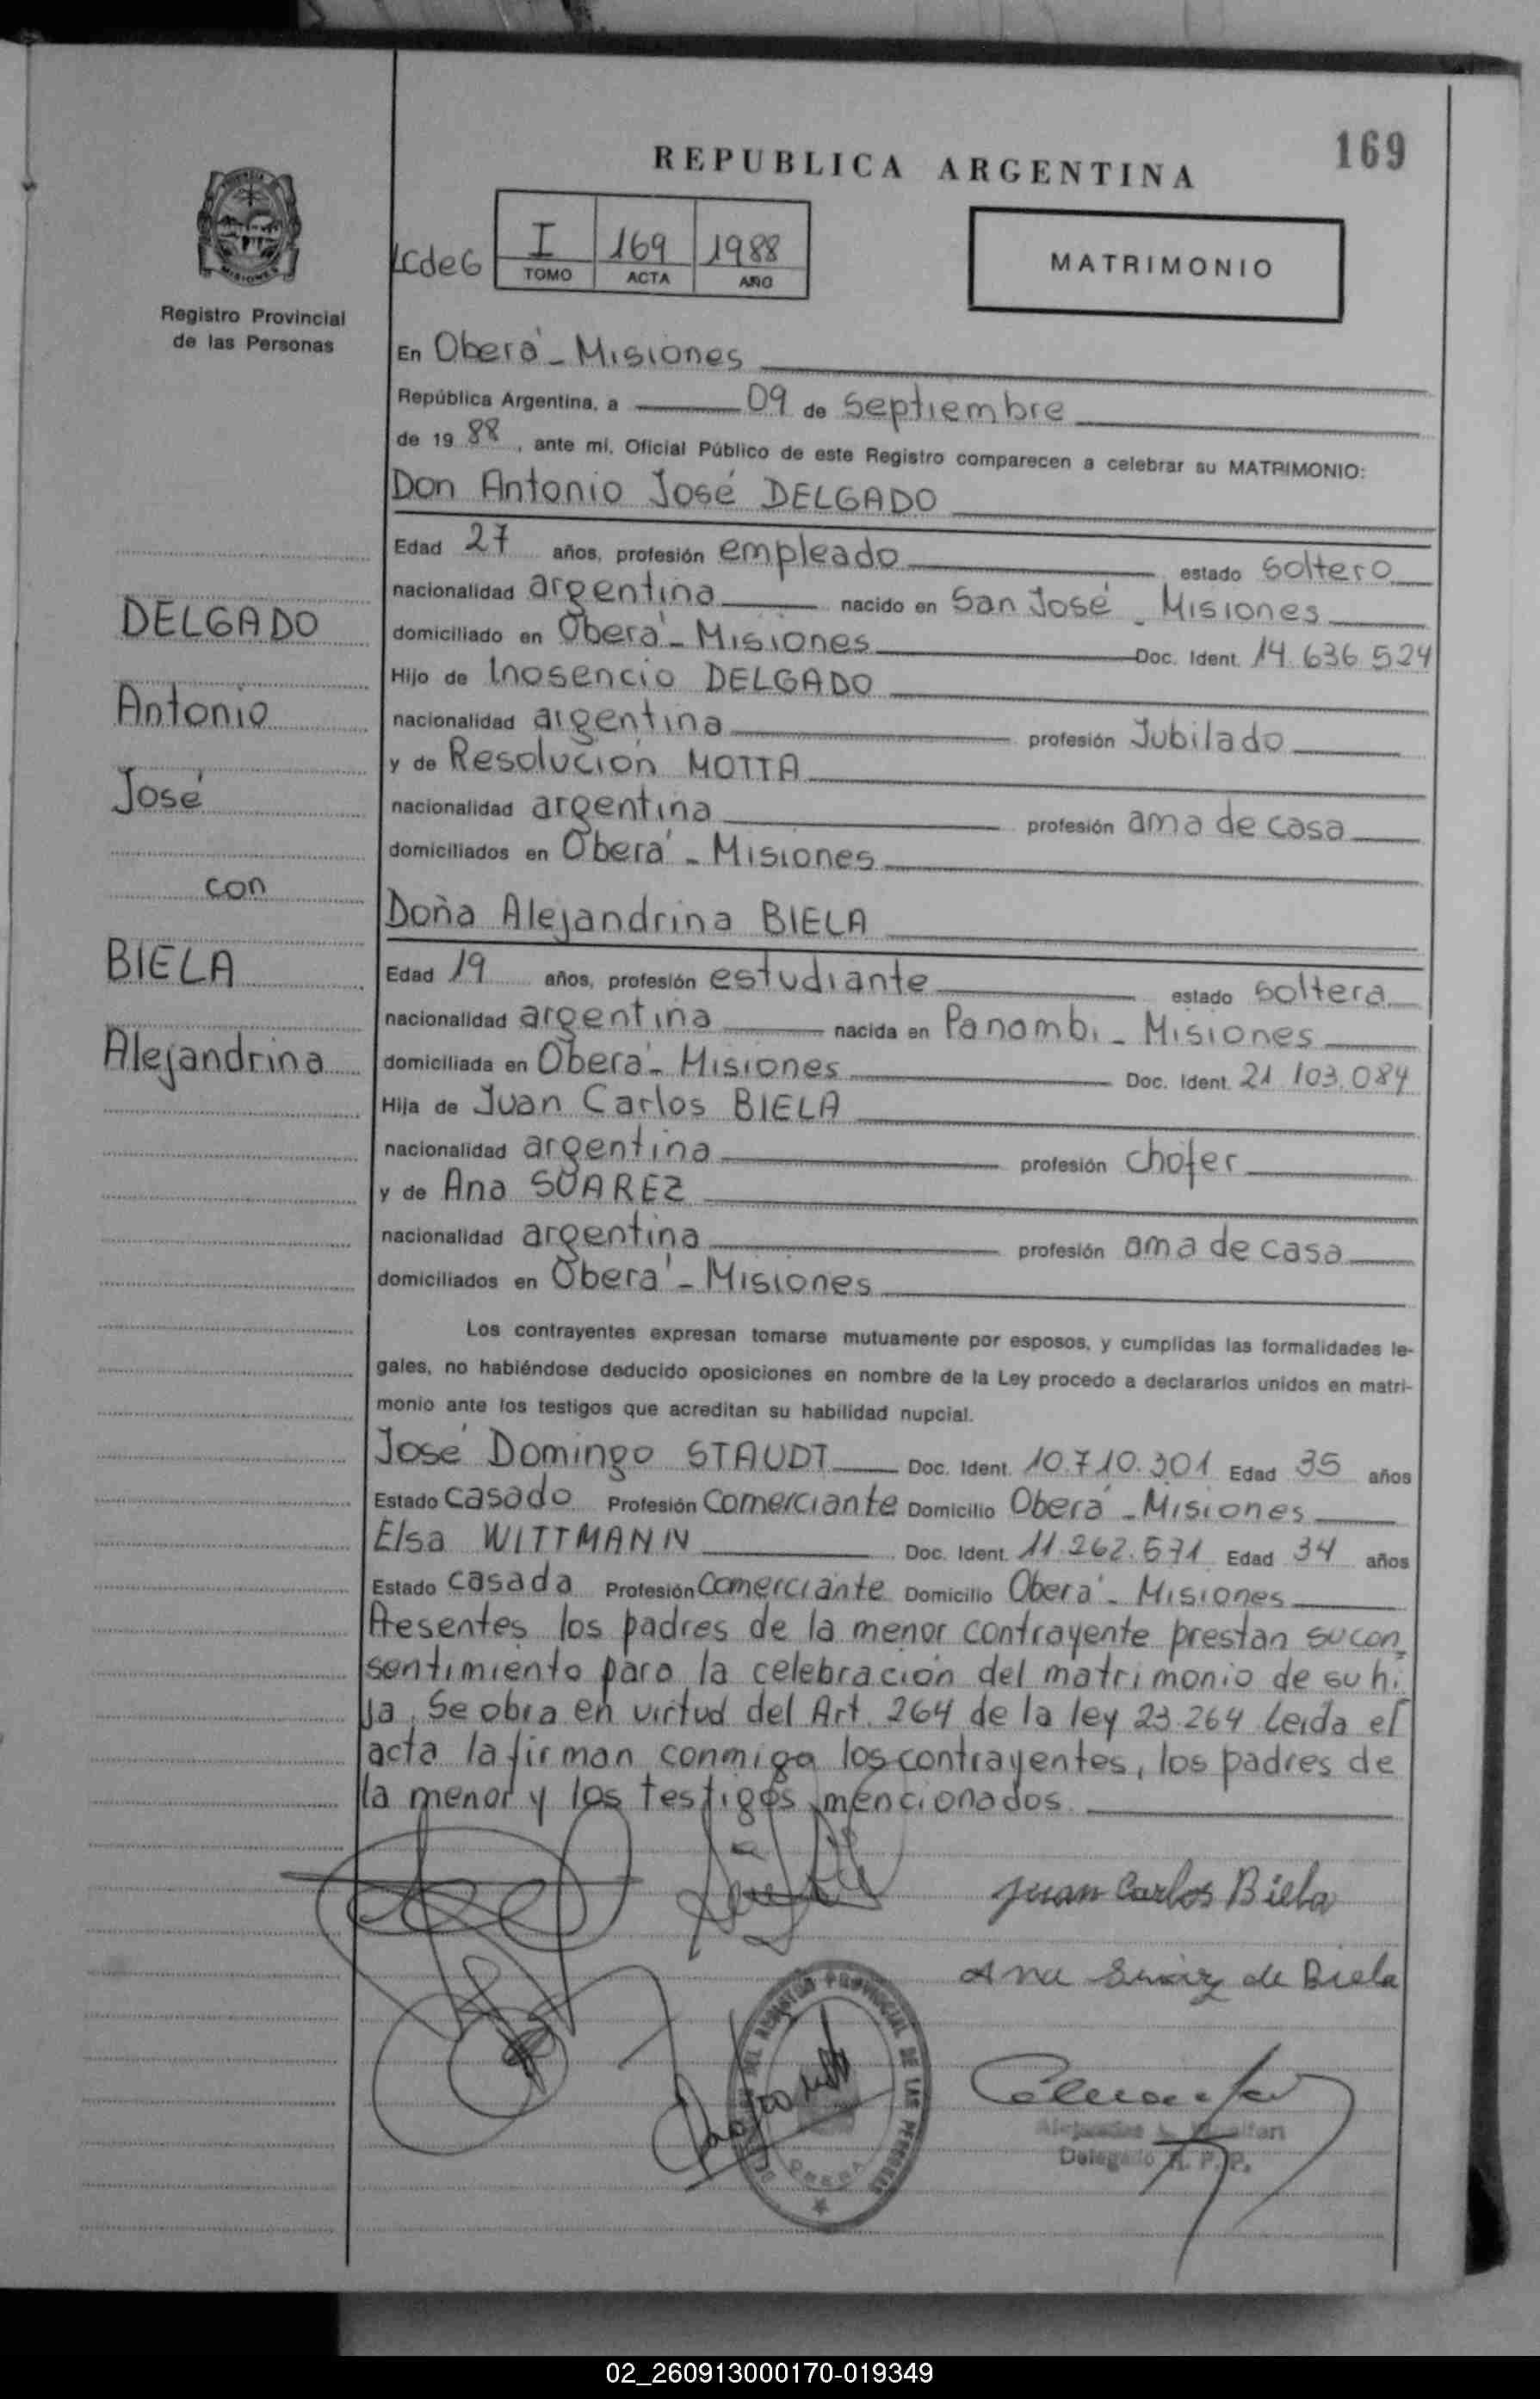 169
REPUBLICA ARGENTINA
LCdeG
I 169 1988
TOMO ACTA AÑO
MATRIMONIO
Registro Provincial
de las Personas
En Oberá - Misiones
República Argentina, a 09 de septiembre
de 19 88, ante mí, Oficial Público de este Registro comparecen a celebrar su MATRIMONIO:
Don Antonio José DELGADO
Edad 27 años, profesión empleado estado soltero
nacionalidad argentina nacido en San José - Misiones
domiciliado en Oberá - Misiones Doc. Ident. 14.636.524
Hijo de Inosencio DELGADO
nacionalidad argentina profesión Jubilado
y de Resolución MOTTA
nacionalidad argentina profesión ama de casa
domiciliados en Oberá - Misiones
Doña Alejandrina BIELA
Edad 19 años, profesión estudiante estado soltera
nacionalidad argentina nacida en Panambi - Misiones
domiciliada en Oberá - Misiones Doc. Ident. 21.103.084
Hija de Juan Carlos BIELA
nacionalidad argentina profesión chofer
y de Ana SUAREZ
nacionalidad argentina profesión ama de casa
domiciliados en Oberá - Misiones
DELGADO
Antonio
José
con
BIELA
Alejandrina
Los contrayentes expresan tomarse mutuamente por esposos, y cumplidas las formalidades le-
gales, no habiéndose deducido oposiciones en nombre de la Ley procedo a declararlos unidos en matri-
monio ante los testigos que acreditan su habilidad nupcial.
José Domingo STAUDT Doc. Ident. 10.710.301 Edad 35 años
Estado casado Profesión comerciante Domicilio Oberá - Misiones
Elsa WITTMANN Doc. Ident. 11.262.571 Edad 34 años
Estado casada Profesión comerciante Domicilio Oberá - Misiones
Presentes los padres de la menor contrayente prestan su con-
sentimiento para la celebración del matrimonio de su hi-
ja. Se obra en virtud del Art. 264 de la ley 23.264. Leída el
acta la firman conmigo los contrayentes, los padres de
la menor y los testigos mencionados
Juan Carlos Biela
Ana Suárez de Biela
DEL REGISTRO PROVINCIAL DE LAS PERSONAS
OBERA
Delegado R. P. P.
02_260913000170-019349